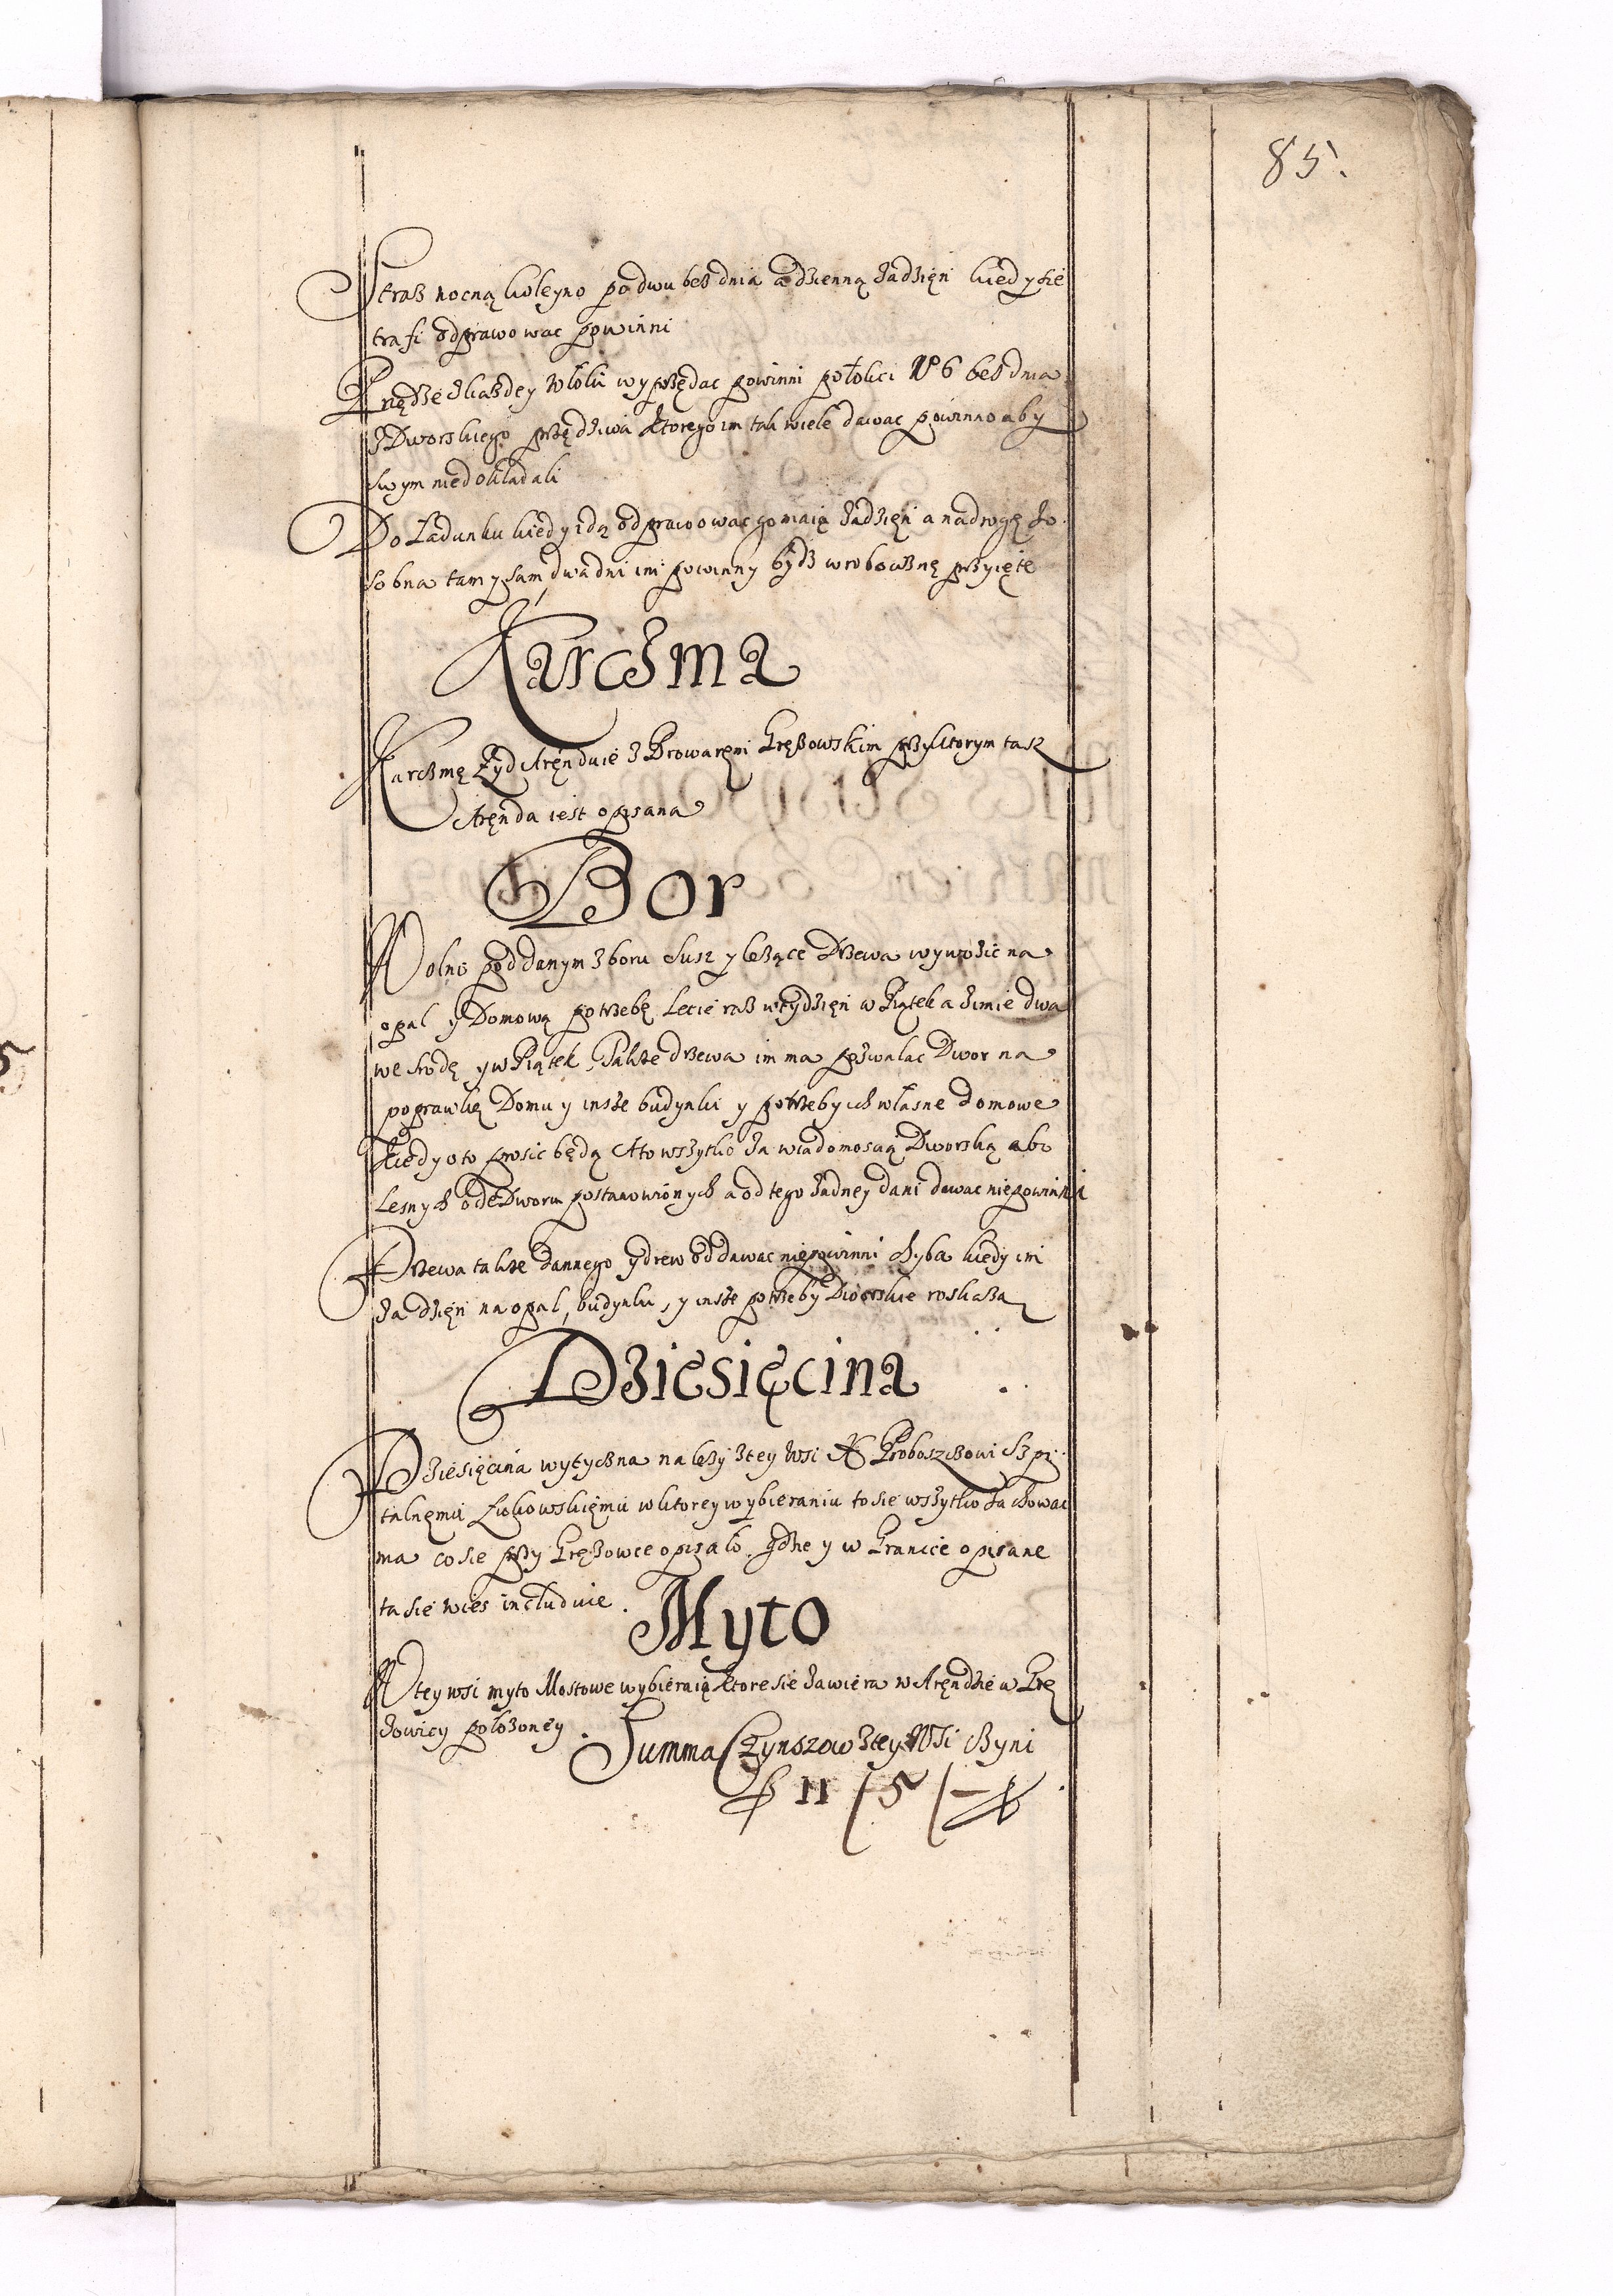 85.
Straz nocną koleyno po dwu bez dnia a dzienną za dzięn kiedy sie
trafi odprawowac powinni
Przędze z kazdey Włoki wyprzędac powinni połokci No 6 bez dnia
z Dworskiego przędziwa ktorego im tak wiele dawac powinno aby
swym niedokładali
Do Ładunku kiedy idą odprawowac go maią za dzięn a na drogę z o
sobna tam y sam, dwa dni im powinny bydz w robociznę przyięte
Karczma
Karczmę Zyd Aręnduie z Browaręm Gręzowskim przy ktorym tasz
Aręnda iest opisana
Bor
Wolno poddanym z boru Susz y lezące Drzewa wywozic na
opal y Domową potrzebę Lecie raz w tydzięn w Piątek a zimie dwa
we srodę y w Piątek, Także drzewa im ma pozwalac Dwor na
poprawkę Domu y insze budynki y potrzeby ich własne domowe
Kiedy o to prosic będą A to wszytko za wiadomoscią Dworską abo
Lesnych ode Dworu postanowionych a od tego zadney dani dawac niepowinni
Drzewa także dannego y drew oddawac niepowinni chyba kiedy im
za dzięn na opal, budynku, y insze potrzeby Dworskie roskaza
Dziesięcina
Dziesięcina wytyczna nalezy z tey Wsi X Proboszczowi Szpi
talnęmu Łukowskięmu w ktorey wybieraniu to sie wszytko zachowac
ma co sie przy Gręzowce opisało. Gdzie y w Granice opisane
ta sie wies includuie.
Myto
W tey wsi myto Mostowe wybieraią ktore sie zawiera w Aręndzie w Grę
zowicy połozoney.
Summa Czynszow z tey Wsi czyni
f 11 / 5 / —